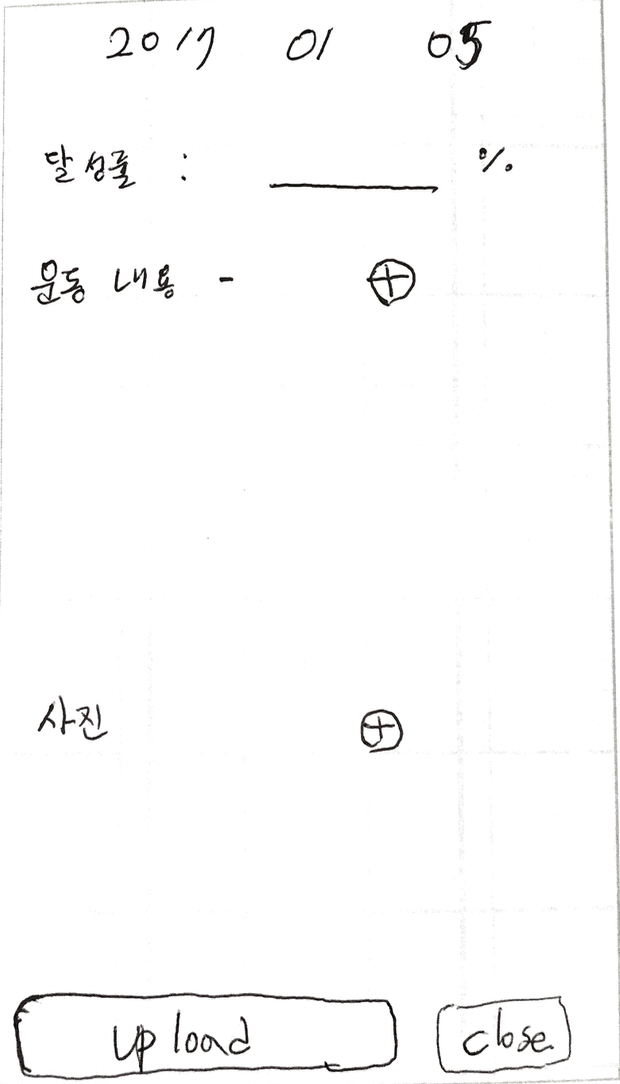 2017 01 05
달성률 : %
운동 내용 -
사진
upload close